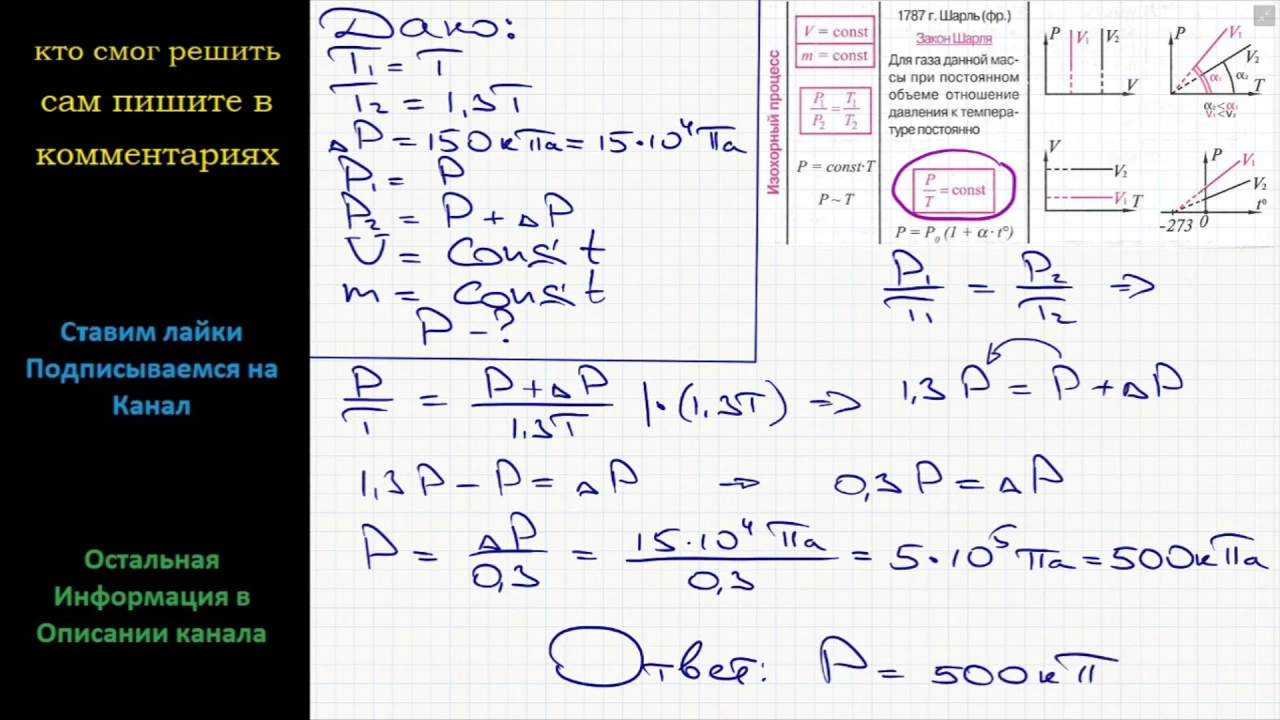 кто смог решить
сам пишите в
комментариях
Ставим лайки
Подписываемся на
Канал
Остальная
Информация в
Описании канала
Дано:
T₁ = T
T₂ = 1,3T
ΔP = 150кПа = 15·10⁴Па
P₁ = P
P₂ = P + ΔP
V = const
m = const
P - ?
Изохорный процесс
V = const
m = const
P₁/P₂ = T₁/T₂
P = const·T
P ~ T
1787 г. Шарль (фр.)
Закон Шарля
Для газа данной мас-
сы при постоянном
объеме отношение
давления к темпера-
туре постоянно
P/T = const
P = P₀ (1 + α · t°)
P V₁ V₂ V
P V₁ V₂ α₁ α₂ T
α₂<α₁
V₁<V₂
V V₂ V₁ T
P V₁ V₂ t°
-273 0
P₁/T₁ = P₂/T₂ =>
P/T = (P + ΔP)/1,3T |·(1,3T) => 1,3P = P + ΔP
1,3P - P = ΔP → 0,3P = ΔP
P = ΔP/0,3 = 15·10⁴Па/0,3 = 5·10⁵Па = 500кПа
Ответ: P = 500кП